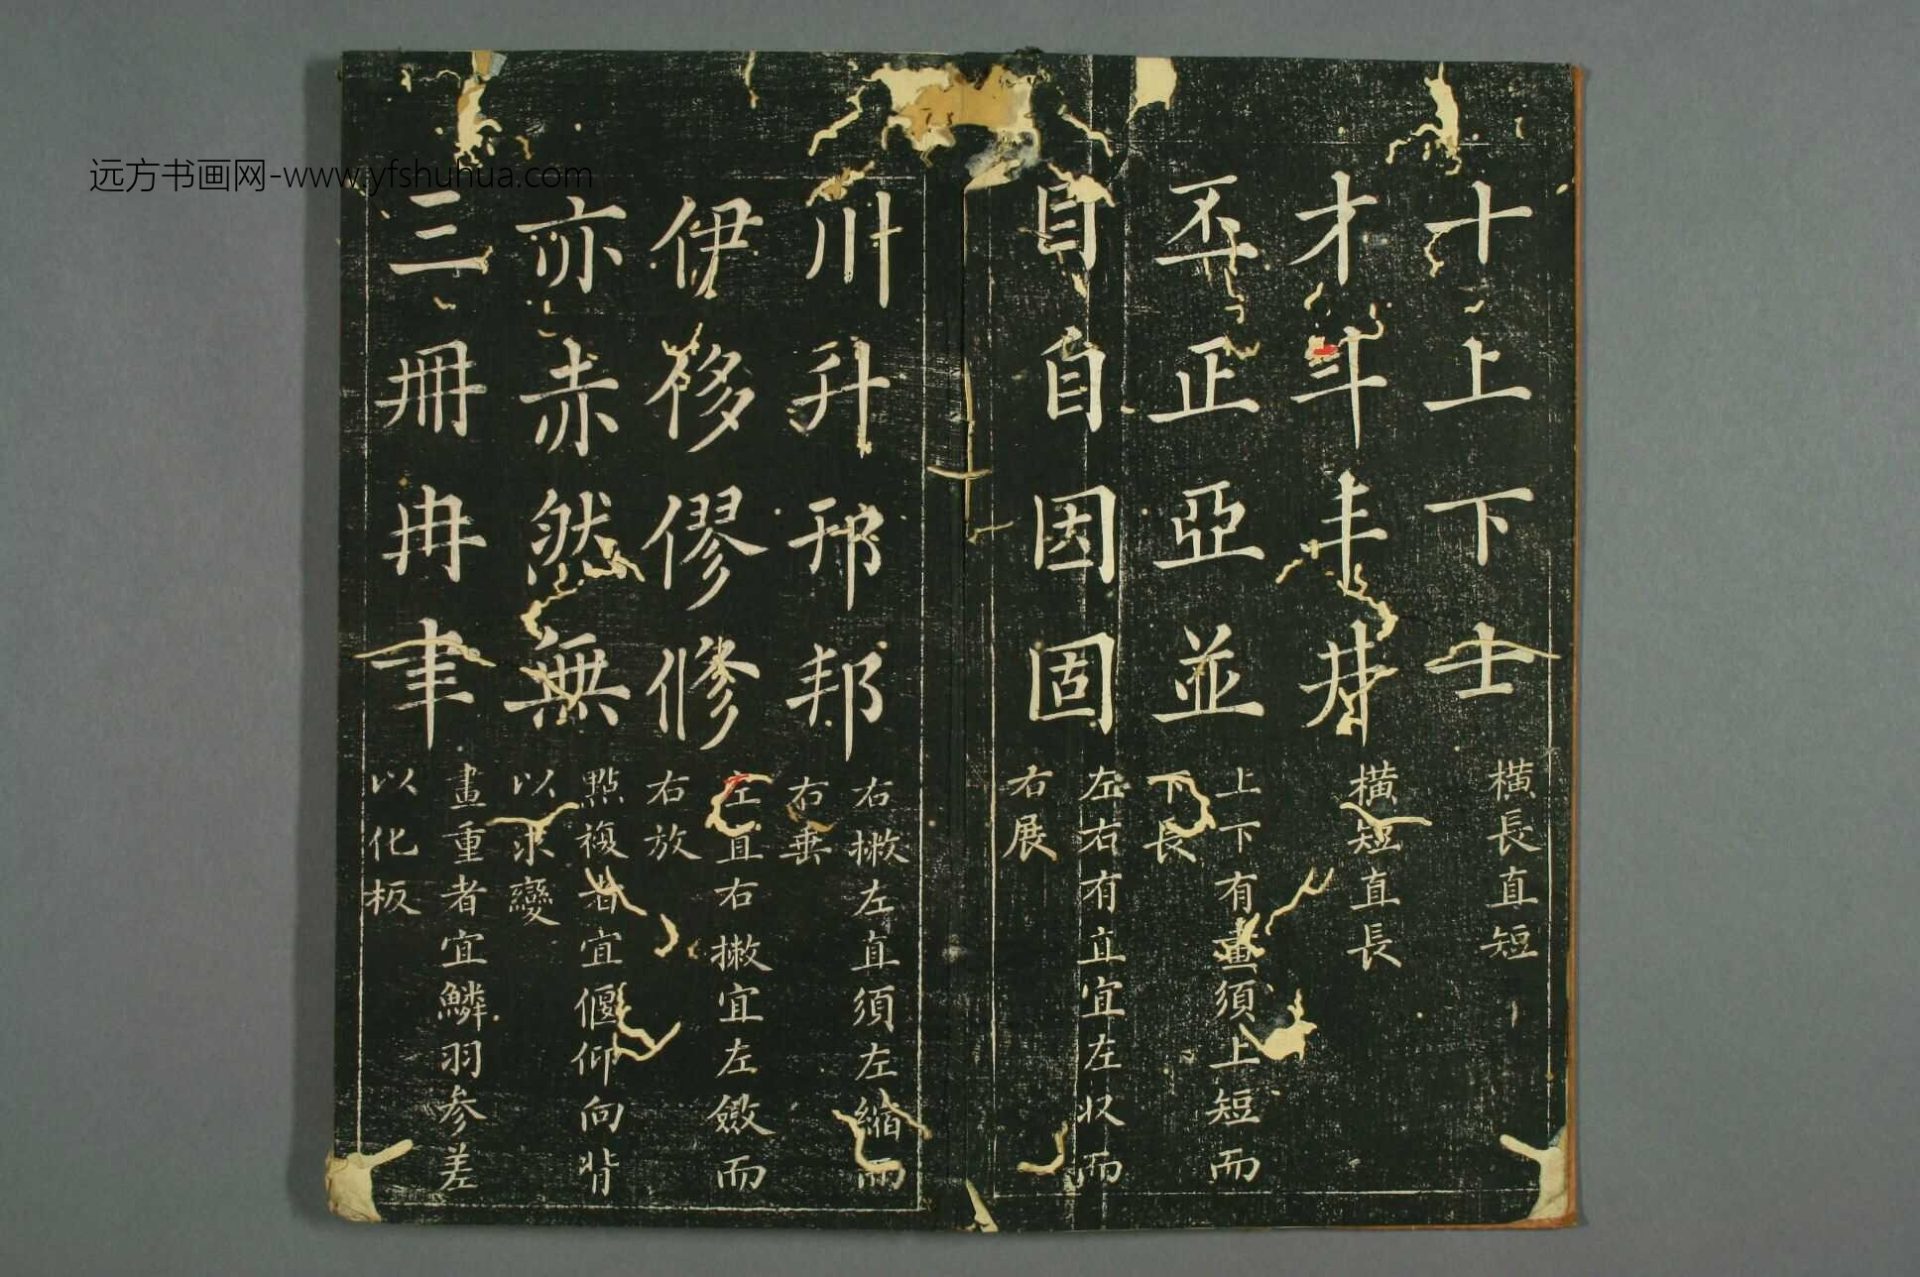 十上下士
橫長直短
才斗丰井
橫短直長
丕正亞並
上下有畫須上短而
下長
目自因固
左右有直宜左収而
右展
升邦
右撇左直須左縮而
右垂
伊移僇修
左直右撇宜左斂而
右放
亦赤然無
點複者宜偃仰向背
以求變
三冊冉聿
畫重者宜鱗羽参差
以化板
远方书画网-www.yfshuhua.com